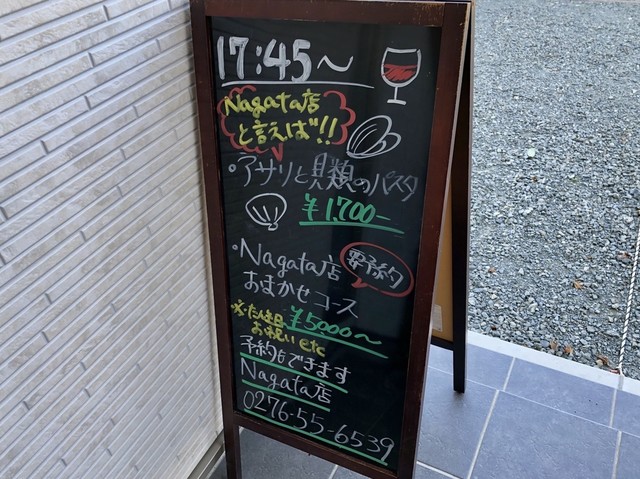 17:45〜
Nagata店
と言えば!!
・アサリと貝類のパスタ
¥1,700-
・Nagata店
要予約
おまかせコース
¥5000〜
お祝い etc
予約もできます
Nagata店
0276-55-6539